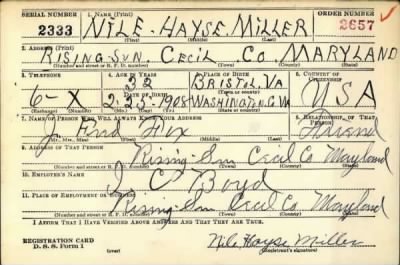 SERIAL NUMBER 1. NAME (Print) ORDER NUMBER
2333 NILE HAYSE MILLER 2657
(First) (Middle) (Last)
2. ADDRESS (Print)
RISING SUN CECIL CO. MARYLAND
(Number and street or R. F. D. number) (Town) (County) (State)
3. TELEPHONE 4. AGE IN YEARS 5. PLACE OF BIRTH 6. COUNTRY OF CITIZENSHIP
32 BRISTOL VA
DATE OF BIRTH (Town or county)
6-X 1908 WASHINGTON C. VA USA
(Exchange) (Number) (Mo.) (Day) (Yr.) (State or country)
7. NAME OF PERSON WHO WILL ALWAYS KNOW YOUR ADDRESS 8. RELATIONSHIP OF THAT PERSON
J. Fox Friend
(Mr., Mrs., Miss) (First) (Middle) (Last)
9. ADDRESS OF THAT PERSON
Rising Sun Cecil Co Maryland
(Number and street or R. F. D. number) (Town) (County) (State)
10. EMPLOYER'S NAME
J. C. Boyd
11. PLACE OF EMPLOYMENT OR BUSINESS
Rising Sun Cecil Co Maryland
(Number and street or R. F. D. number) (Town) (County) (State)
I AFFIRM THAT I HAVE VERIFIED ABOVE ANSWERS AND THAT THEY ARE TRUE.
REGISTRATION CARD Nile Hayse Miller
D. S. S. FORM 1 (Registrant's signature)